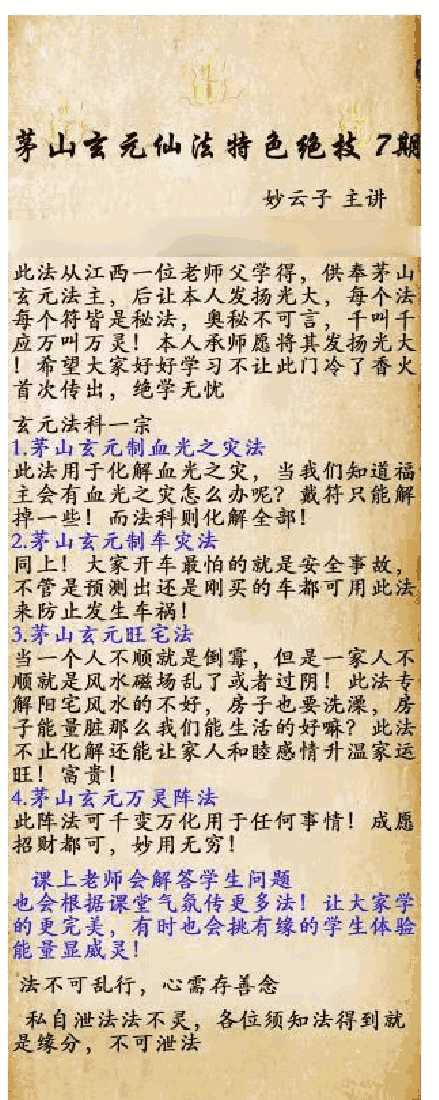 茅山玄元仙法特色绝技 7期
妙云子 主讲
此法从江西一位老师父学得，供奉茅山
玄元法主，后让本人发扬光大，每个法
每个符皆是秘法，奥秘不可言，千叫千
应万叫万灵！本人承师愿将其发扬光大
！希望大家好好学习不让此门冷了香火
首次传出，绝学无忧
玄元法科一宗
1.茅山玄元制血光之灾法
此法用于化解血光之灾，当我们知道福
主会有血光之灾怎么办呢？戴符只能解
掉一些！而法科则化解全部！
2.茅山玄元制车灾法
同上！大家开车最怕的就是安全事故，
不管是预测出还是刚买的车都可用此法
来防止发生车祸！
3.茅山玄元旺宅法
当一个人不顺就是倒霉，但是一家人不
顺就是风水磁场乱了或者过阴！此法专
解阳宅风水的不好，房子也要洗澡，房
子能量脏那么我们能生活的好嘛？此法
不止化解还能让家人和睦感情升温家运
旺！富贵！
4.茅山玄元万灵阵法
此阵法可千变万化用于任何事情！成愿
招财都可，妙用无穷！
课上老师会解答学生问题
也会根据课堂气氛传更多法！让大家学
的更完美，有时也会挑有缘的学生体验
能量显威灵！
法不可乱行，心需存善念
私自泄法法不灵，各位须知法得到就
是缘分，不可泄法